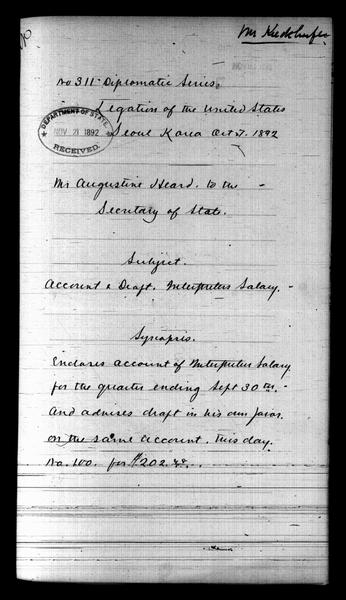 No 311 Diplomatic Series.
Legation of the United States
DEPARTMENT OF STATE
NOV 21 1892
RECEIVED.
Seoul Korea Oct 7. 1892
Mr Augustine Heard. to the -
Secretary of State.
Subject.
Account & Draft. Interpreters Salary. -
Synopsis.
Encloses account of Interpreters Salary
for the quarter ending Sept 30th. -
And advises draft in his own favor.
on the same account. this day.
No. 100. for $202.